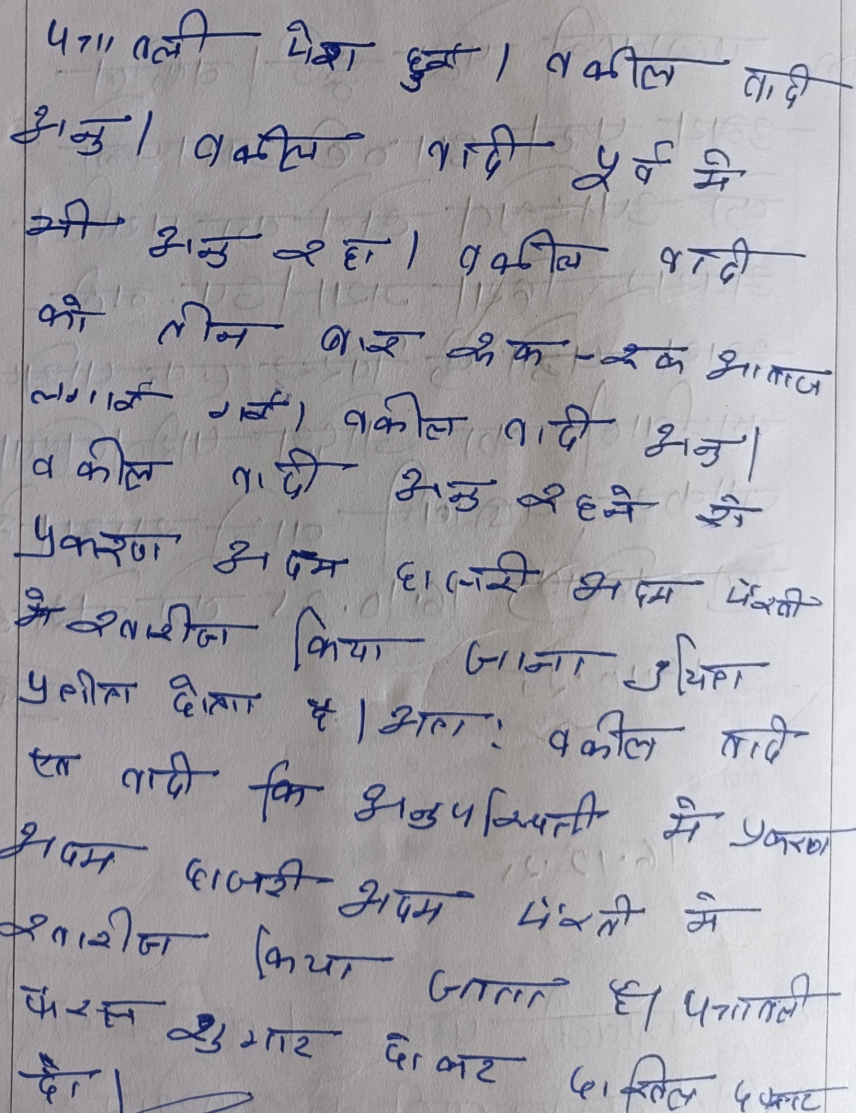 पत्रावली पेश हुई। वकील वादी
अनु। वकील वादी पूर्व में
भी अनु रहा। वकील वादी
को तीन बार रूक-रूक आवाज
लगाई गई। वकील वादी अनु।
वकील वादी अनु रहने से
प्रकरण अदम हाजरी अदम पैरवी
में खारीज किया जाना उचित
प्रतीत होता है। अतः वकील वादी
एव वादी कि अनुपस्थिती में प्रकरण
अदम हाजरी अदम पैरवी में
खारीज किया जाता है। पत्रावली
फैसल शुमार होकर दाखिल दफ्तर
हो।